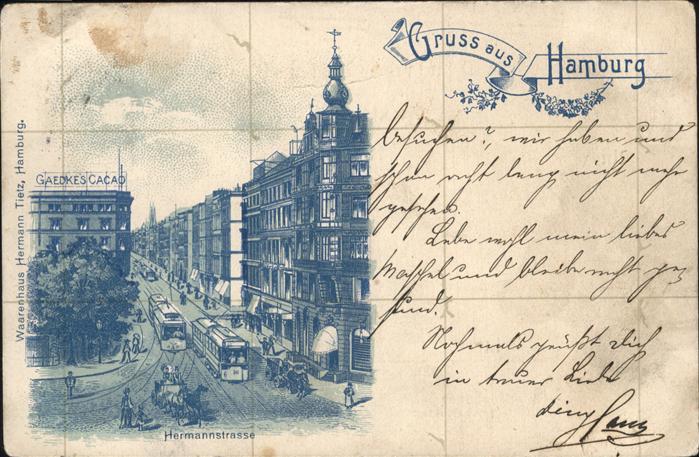 Gruss aus Hamburg
GAEDKES CACAO
Waarenhaus Hermann Tietz, Hamburg.
Hermannstrasse
besuchen?, wir haben uns
schon recht lang nicht mehr
gesehen.
Lebe wohl mein liebes
und bleibe recht ge-
sund.
Nochmals grüßt Dich
in treuer Liebe
dein Hans